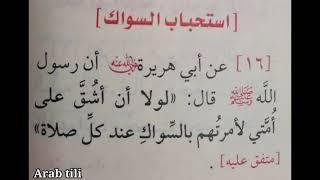 [استحباب السواك]
[١٦] عن أبي هريرة رضي الله عنه أن رسول
اللَّه ﷺ قال: «لولا أن أشُقَّ على
أُمَّتي لأمرتُهم بالسِّواكِ عند كلِّ صلاة»
[متفق عليه].
Arab tili